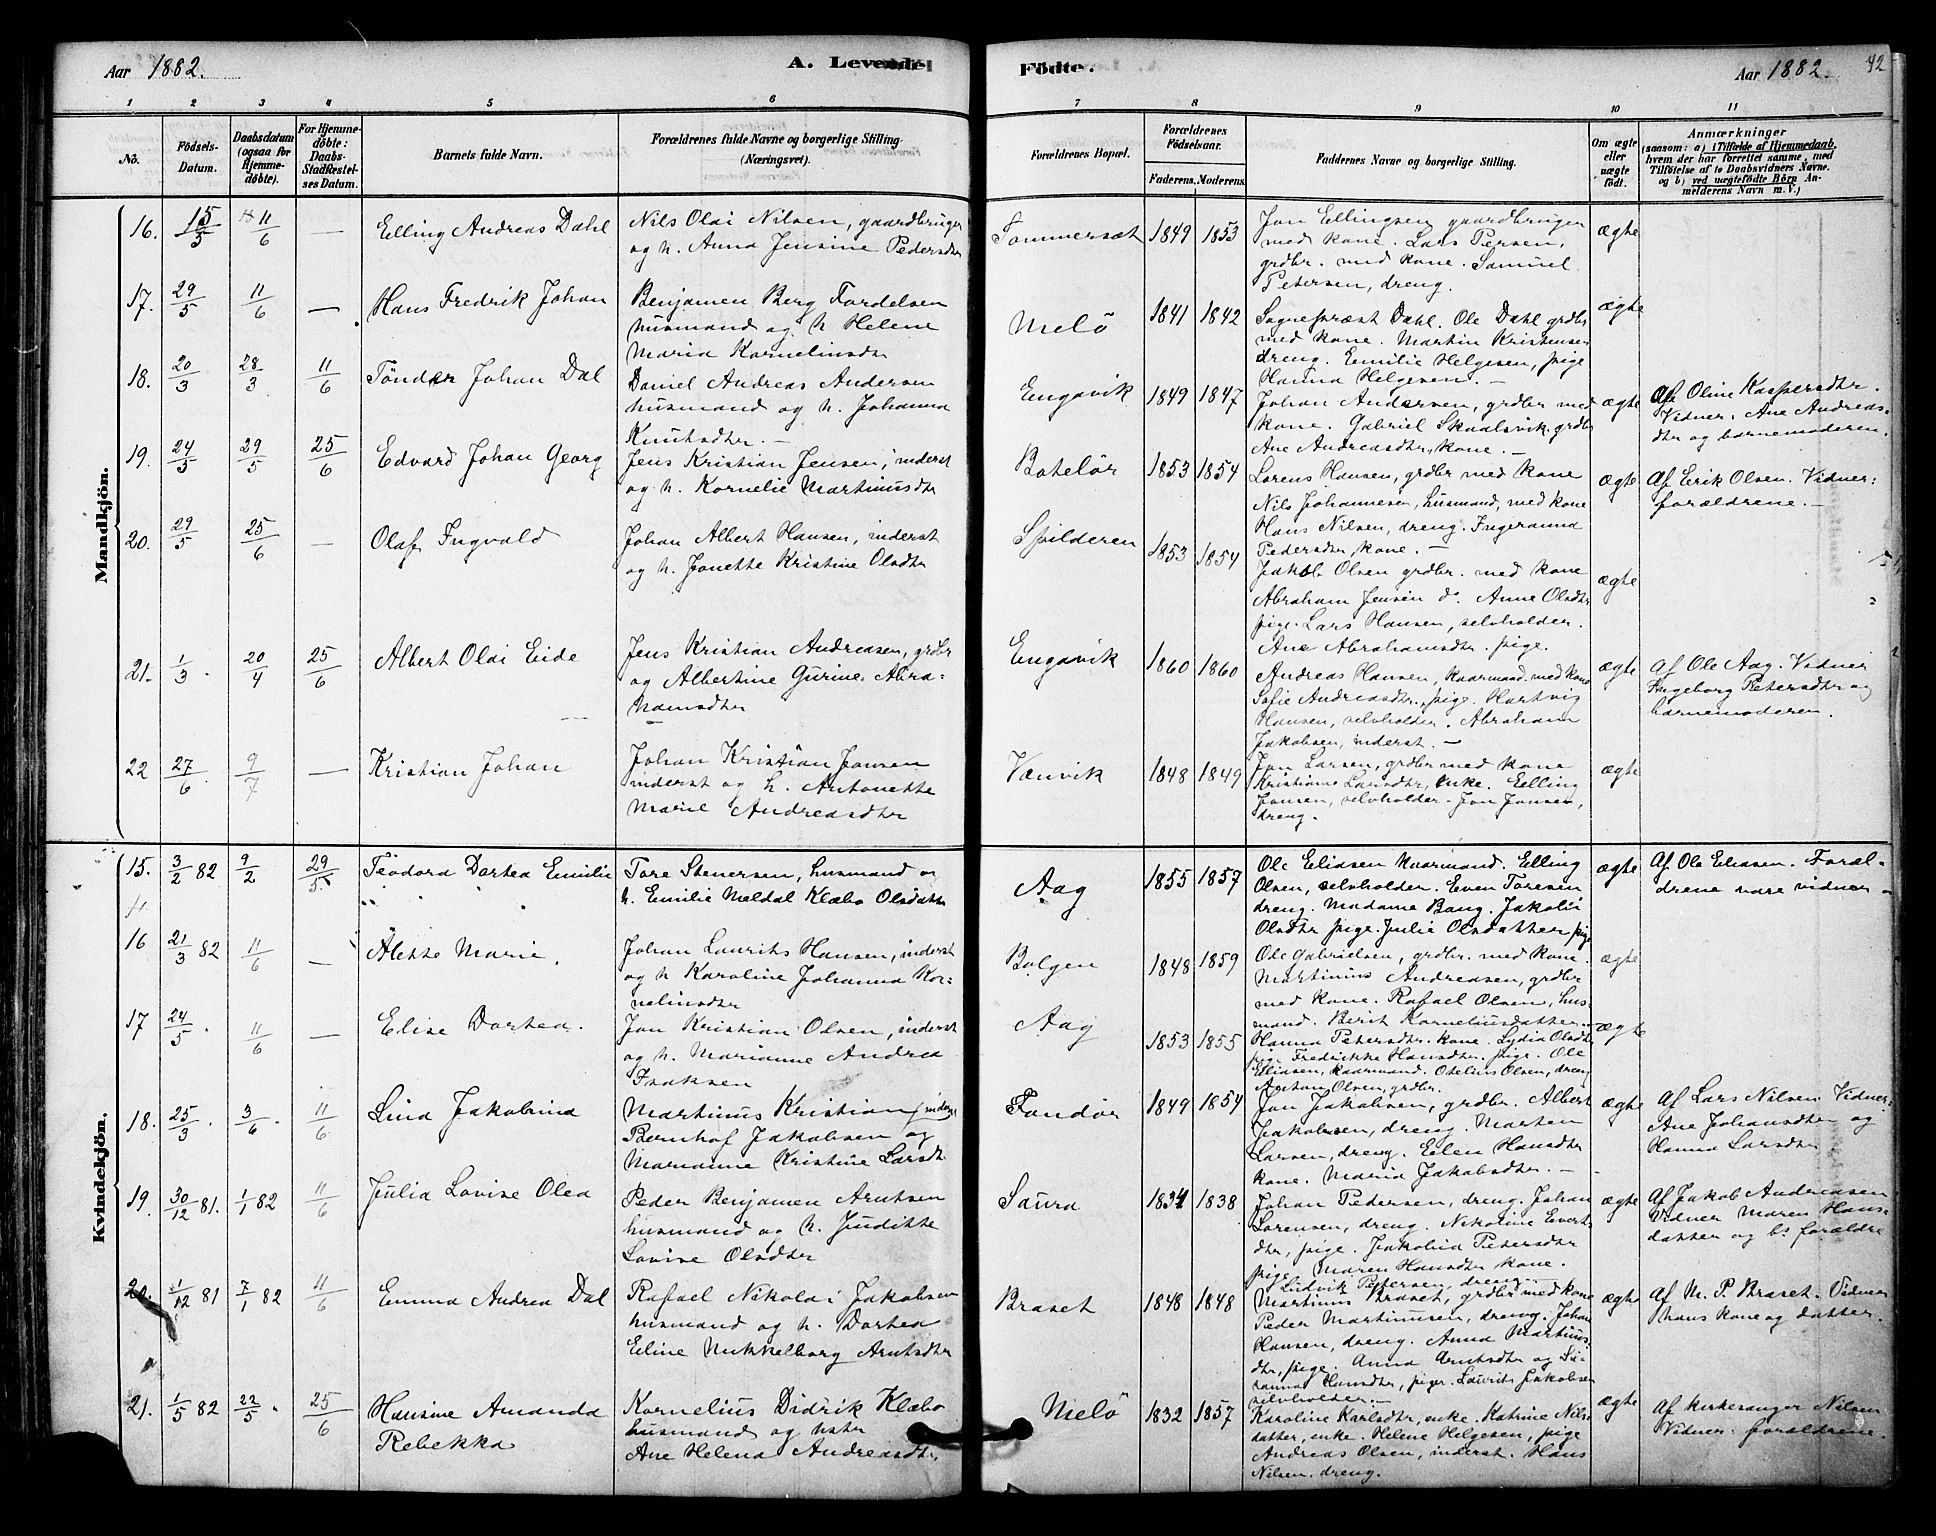 Aar 1882.
A. Levende
1 2 3 4 5 6
No.
Födsels-Datum.
Daabsdatum (ogsaa for Hjemmedöbte).
For Hjemmedöbte: Daabs-Stadfæstelses Datum.
Barnets fulde Navn.
Forældrenes fulde Navne og borgerlige Stilling (Næringsvei).
Mandkjön.
16. 15/5 11/6 — Elling Andreas Dahl
Nils Olai Nilsen, gaardbruger
og h. Anna Jensine Pedersdtr
17. 29/5 11/6 — Hans Fredrik Johan
Benjamen Berg Fordelsen
husmand og h Helene
Maria Korneliusdtr
18. 20/3 28/3 11/6 Tönder Johan Dal
Daniel Andreas Andersen
husmand og h. Johanna
Knutsdtr. —
19. 24/5 29/5 25/6 Edvard Johan Georg
Jens Kristian Jensen, inderst
og h. Kornelie Martinusdtr
20. 29/5 25/6 — Olaf Ingvald
Johan Albert Hansen, inderst
og h. Jonette Kristine Olsdtr
21. 1/3. 20/4 25/6 Albert Olai Eide
Jens Kristian Andreasen, grdbr
og Albertine Gurine Abra-
hamsdtr
22 27/6. 9/7 — Kristian Johan
Johan Kristian Jonsen
inderst og h. Antonette
Marie Andreasdtr
Kvindekjön.
15. 3/2 82 9/2 29/5 Teodora Dortea Emilie
Tore Stenersen, husmand og
h. Emilie Meldal Klæbo Olsdatter
16 21/3 82 11/6 — Alette Marie.
Johan Laurits Hansen, inderst
og h Karoline Johanna Kor-
neliusdtr
17 24/5. 11/6 — Elise Dortea.
Jon Kristian Olsen, inderst
og h. Marianne Andrea
Isaksen
18. 25/3. 3/6. 11/6 Lina Jakobina
Martinus Kristian inderst
Bernhof Jakobsen og
Marianne Kristine Larsdtr
19. 30/12 81. 1/1 82 11/6 Julia Lovise Olea
Peder Benjamen Arntsen
husmand og h. Juditte
Lovise Olsdtr
20. 1/12 81 7/1 82 11/6 Emma Andrea Dal
Rafael Nikolai Jakobsen
husmand og h. Dortea
Eline Mikkelborg Arntsdtr
21. 1/5 82 22/5. 25/6 Hansine Amanda
Rebekka
Kornelius Didrik Klæbo
husmand og hstr
Ane Helena Andreasdtr.
Födte.
Aar 1882. 42
7 8 9 10 11
Forældrenes Bopæl.
Forældrenes Födselsaar.
Faderens. Moderens.
Faddernes Navne og borgerlige Stilling.
Om ægte eller uægte födt.
Anmærkninger
(saasom: a) i Tilfælde af Hjemmedaab, hvem der har forrettet samme, med Tilföielse af to Daabsvidners Navne. og b) ved uægtefödte Börn Anmelderens Navn m. V.)
Sommerset 1849 1853
Jon Ellingsen gaardbruger
med kone. Lars Persen,
grdbr. med kone. Samuel
Petersen, dreng.
ægte
Melö 1841 1842
Sognepræst Dahl. Ole Dahl grdbr
med kone. Martin Kristensen
dreng. Emilie Helgesen, pige
Hanna Helgesen. —
ægte
Engavik 1849 1847
Johan Andersen, grdbr med
kone. Gabriel Skaalsvik. grdbr
Ane Andreasdtr, kone. —
ægte
Af Oline Kaspersdtr.
Vidner. Ane Andreas-
dtr og barnemoderen.
Botelör 1853 1854
Lorens Hansen, grdbr med kone
Nils Johannesen, husmand, med kone
Hans Nilsen, dreng. Ingeranna
Pedersdtr, kone. —
ægte
Af Erik Olsen. Vidner:
forældrene. —
Spilderen 1853 1854
Jakob Olsen grdbr. med kone
Abraham Jensen do. Anne Olsdtr
pige. Lars Hansen, selvholder.
Ane Abrahamsdtr. pige.
ægte
Engavik 1860 1860
Andreas Hansen, kaarmand med kone
Sofie Andreasdtr, pige. Hartvig
Hansen, selvholder. Abraham
Jakobsen, inderst. —
ægte
Af Ole Aag. Vidner
Ingeborg Petersdtr og
barnemoderen.
Vænvik 1848 1849
Jon Larsen, grdbr med kone
Kristiane Larsdtr, enke. Elling
Jonsen, selvholder. Jon Jonsen,
dreng.
ægte
Aag 1855 1857
Ole Eliasen kaarmand. Elling
Olsen, selvholder. Even Toresen
dreng. Madame Bang. Jakobi
Olsdtr pige. Julie Olsdatter pige
ægte
Af Ole Eliasen. Foræl-
drene vare vidner
Bolgen 1848 1859
Ole Gabrielsen, grdbr. med kone.
Martinus Andreasen, grdbr
med kone. Rafael Olsen, hus-
mand. Berit Korneliusdatter.
ægte
Aag 1853 1855
Hanna Petersdtr. kone. Lydia Olsdtr
pige. Fredrikke Hansdtr. pige. Ole
Eliasen, kaarmand. Otelius Olsen, dreng
Olsen, grdbr.
ægte
Fondör 1849 1854
Jon Jakobsen, grdbr. Albert
Jakobsen, dreng. Morten
Larsen, dreng. Elen Hansdtr
kone. Maria Jakobsdtr. —
ægte
Af Lars Nilsen. Vidner:
Ane Johansdtr og
Hanna Larsdtr.
Saura 1834 1838
Johan Petersen, dreng. Johan
Sörensen, dreng. Nikoline Everts
dtr, pige. Jakobia Petersdtr
pige. Maren Hansdtr kone.
Ludvik Petersen, dreng. —
ægte
Af Jakob Andreasen
Vidner Maren Hans-
datter og bs forældre
Braset 1848 1848
Martinus Braset, grdbr med kone
Peder Martinusen, dreng. Johan
Hansen, dreng. Anna Martinus-
dtr, pige. Anna Arntsdtr og Su-
sanna Hansdtr, piger. Laurits Jakobsen
selvholder. —
ægte
Af M. P. Braset. Vidner
hans kone og datter.
Melö 1832 1857
Karoline Karlsdtr, enke. Katrine Nils-
datter, enke. Helene Helgesen, pige
Andreas Olsen, inderst. Hans
Nilsen, dreng.
ægte
Af kirkesanger Nilsen
Vidner: forældrene.